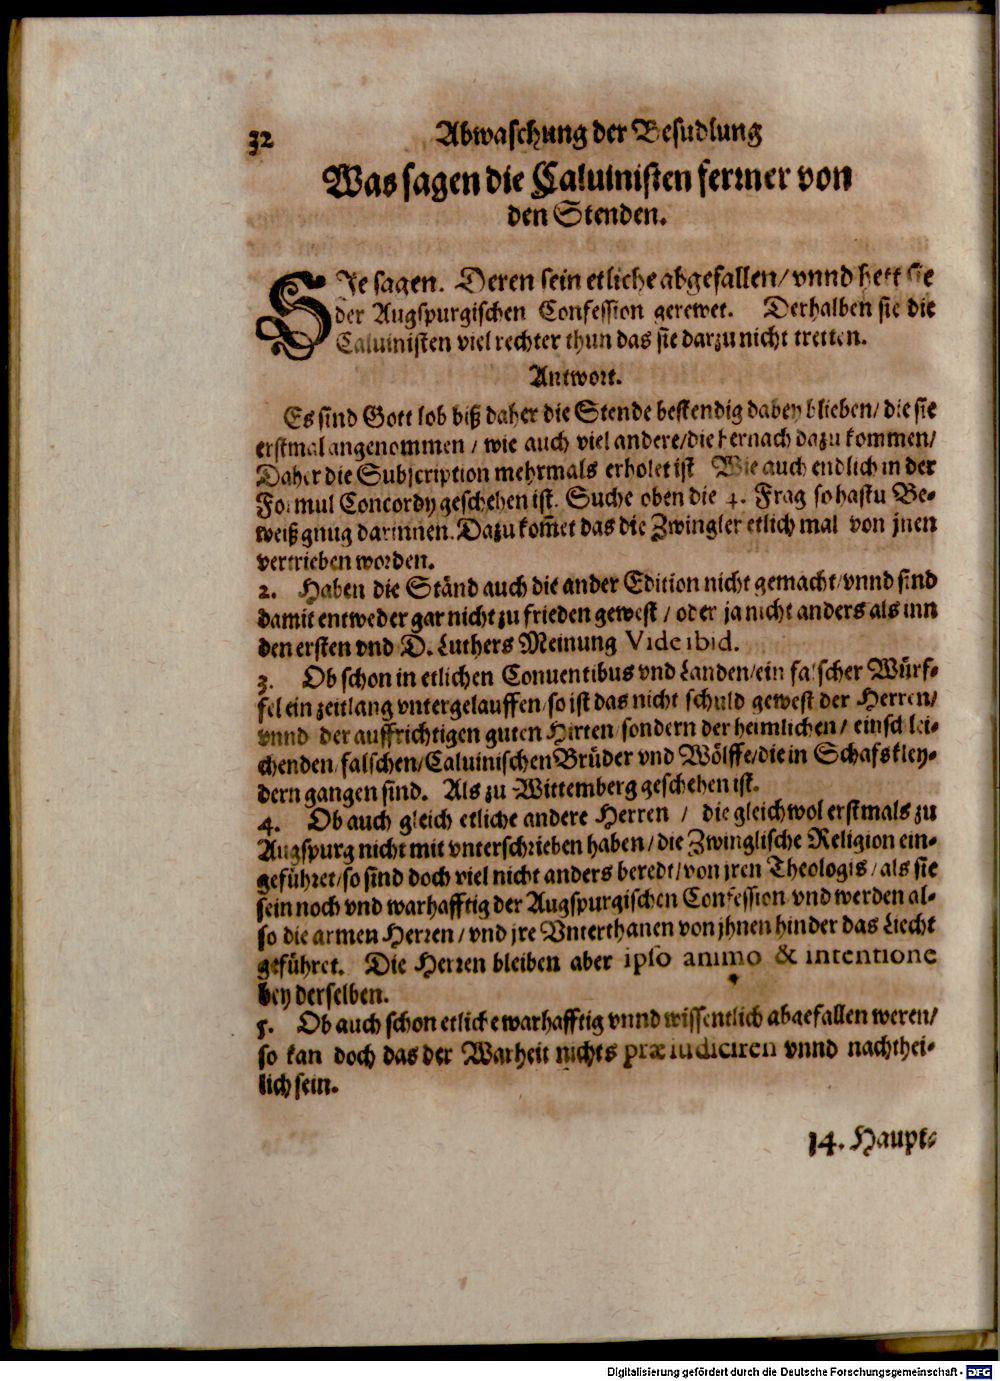 32 Abwaschung der Besudlung
Was sagen die Caluinisten ferrner von
den Stenden.
SIe sagen. Deren sein etliche abgefallen/ vnnd hett sie
der Augspurgischen Confession gerewet. Derhalben sie die
Caluinisten viel rechter thun das sie darzu nicht tretten.
Antwort.
Es sind Gott lob biß daher die Stende bestendig dabey blieben/ die sie
erstmal angenommen / wie auch viel andere/die hernach dazu kommen/
Daher die Subscription mehrmals erholet ist Wie auch endlich in der
Formul Concordy geschehen ist. Suche oben die 4. Frag so hastu Be-
weiß gnug darinnen. Dazu kom̅et das die Zwingler etlich mal von jnen
vertrieben worden.
2. Haben die Ständ auch die ander Edition nicht gemacht/ vnnd sind
damit entweder gar nicht zu frieden gewest / oder ja nicht anders als inn
den ersten vnd D. Luthers Meinung Vide ibid.
3. Ob schon in etlichen Conuentibus vnd Landen/ein falscher Würf-
fel ein zeitlang vntergelauffen/so ist das nicht schuld gewest der Herren/
vnnd der auffrichtigen guten Hirten/sondern der heimlichen/ einschlei-
chenden/falschen/Caluinischen Brüder vnd Wölffe/die in Schafskley-
dern gangen sind. Als zu Wittemberg geschehen ist.
4. Ob auch gleich etliche andere Herren / die gleichwol erstmals zu
Augspurg nicht mit vnterschrieben haben/ die Zwinglische Religion ein-
geführet/so sind doch viel nicht anders beredt/ von jren Theologis / als sie
sein noch vnd warhafftig der Augspurgischen Confession vnd werden al-
so die armen Herren/ vnd jre Vnterthanen von jhnen hinder das Liecht
geführet. Die Herren bleiben aber ipso animo & intentione
bey derselben.
5. Ob auch schon etliche warhafftig vnnd wissentlich abgefallen weren/
so kan doch das der Warheit nichts præiudiciren vnnd nachthei-
lich sein.
14. Haupt-
Digitalisierung gefördert durch die Deutsche Forschungsgemeinschaft - DFG